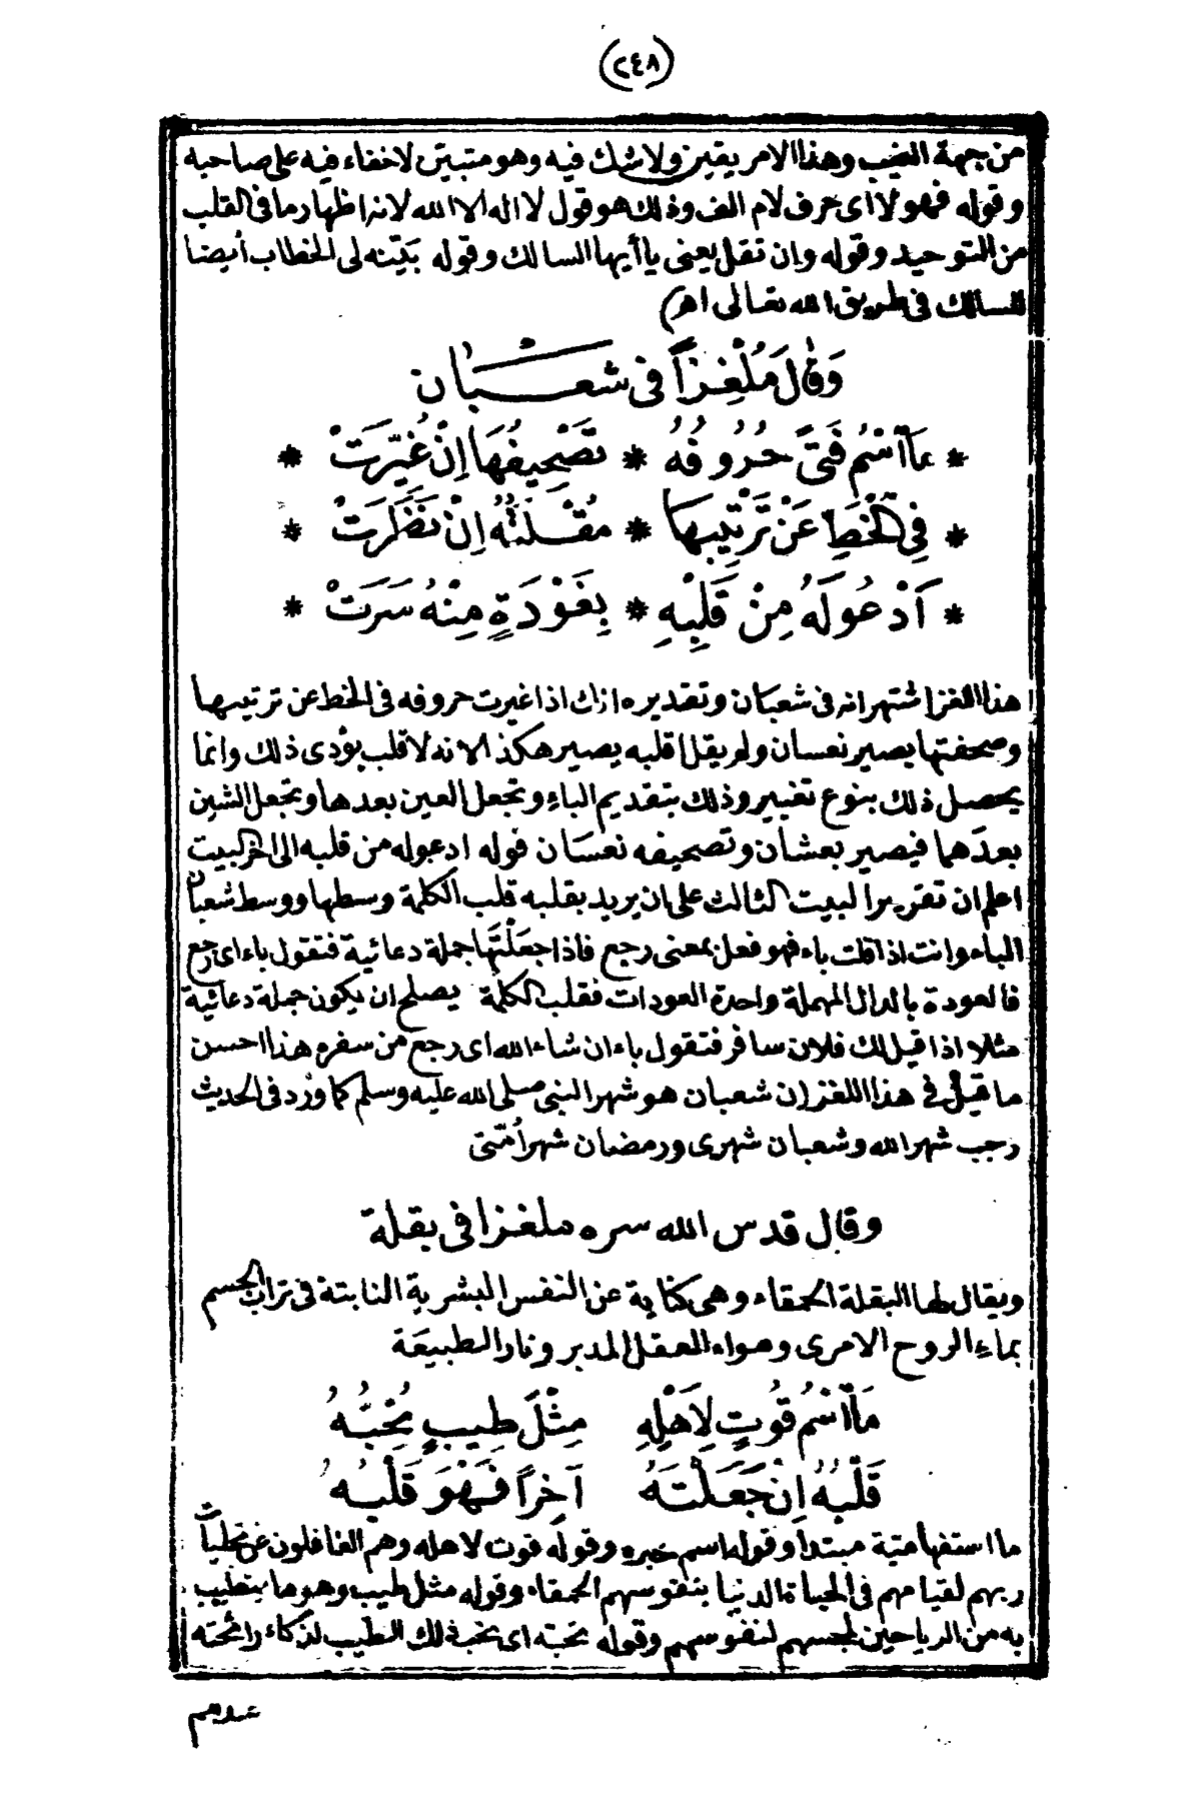 (٢٤٨)
من جهة الغيب وهذا الامر يقين ولا شك فيه وهو متبين لا خفاء فيه على صاحبه
وقوله فهو لا اى حرف لام الف وذلك هو قول لا اله الا الله لانه اظهار ما فى القلب
من التوحيد وقوله وان تقل يعنى يا أيها السالك وقوله بَيّتنه لى الخطاب أيضا
للسالك فى طريق الله تعالى اهـ)
وَقَالَ مُلْغِزاً فى شعبان
* مَا اسْمُ فَتىً حُرُوفُهُ * تَصْحِيفُهَا اِنْ غُيِّرَتْ *
* فِى الْخَطِ عَنْ تَرْتِيبِهَا * مُقْلَتُهُ اِنْ نَظَرَتْ *
* اَدْعُو لَهُ مِنْ قَلْبِهِ * بِعَوْدَةٍ مِنْهُ سَرَتْ *
هذا اللغز اشتهر انه فى شعبان وتقديره انك اذا غيرت حروفه فى الخط عن ترتيبها
وصحفتها يصير نعسان ولم يقل اقلبه يصير هكذا لانه لا قلب يؤدى ذلك وانما
يحصل ذلك بنوع تغيير وذلك بتقديم الباءِ وتجعل العين بعدها وتجعل الشين
بعدَهما فيصير بعشان وتصحيفه نعسَان قوله ادعوله من قلبه الى اخر البيت
اعلم ان تقرير البيت الثالث على ان يريد بقلبه قلب الكلمة وسطها ووسط شعبان
الباء وانت اذا قلت باء فهو فعل بمعنى رجع فاذا جعَلْتَها جملة دعائية فتقول باء اى رجع
فالعودة بالدال المهملة واحدة العودات فقلب الكلمة يصلح ان يكون جملة دعائية
مثلا اذا قيل لك فلان سافر فتقول باء ان شاء الله اى رجع من سفره هذا احسن
ما قيل فى هذا اللغز ان شعبان هو شهر النبى صلى الله عليه وسلم كما ورد فى الحديث
رجب شهر الله وشعبان شهرى ورمضان شهر أُمّتى
وقال قدس الله سره ملغزا فى بقلة
ويقال لها البقلة الحمقاء وهى كناية عن النفس البشرية النابتة فى تراب الجسم
بماءِ الروح الامرى وهواء العقل المدبر ونار الطبيعَة
مَا اسْمُ قُوتٍ لِاَهْلِهِ مِثْلَ طِيبٍ تُحِبُّهُ
قَلْبُهُ اِنْ جَعَلْتَهُ آخِراً فَهْوَ قَلْبُهُ
ما استفهاميّة مبتدأ وقوله اسم خبره وقوله قوت لاهله وهم الغافلون عن تجليات
ربهم لقيامهم فى الحياة الدنيا بنفوسهم الحمقاء وقوله مثل طيب وهو ما يتطيب
به من الرياحين لمجسهم لنفوسهم وقوله تحبّه اى تحب ذلك الطيب لذكاء رائحته